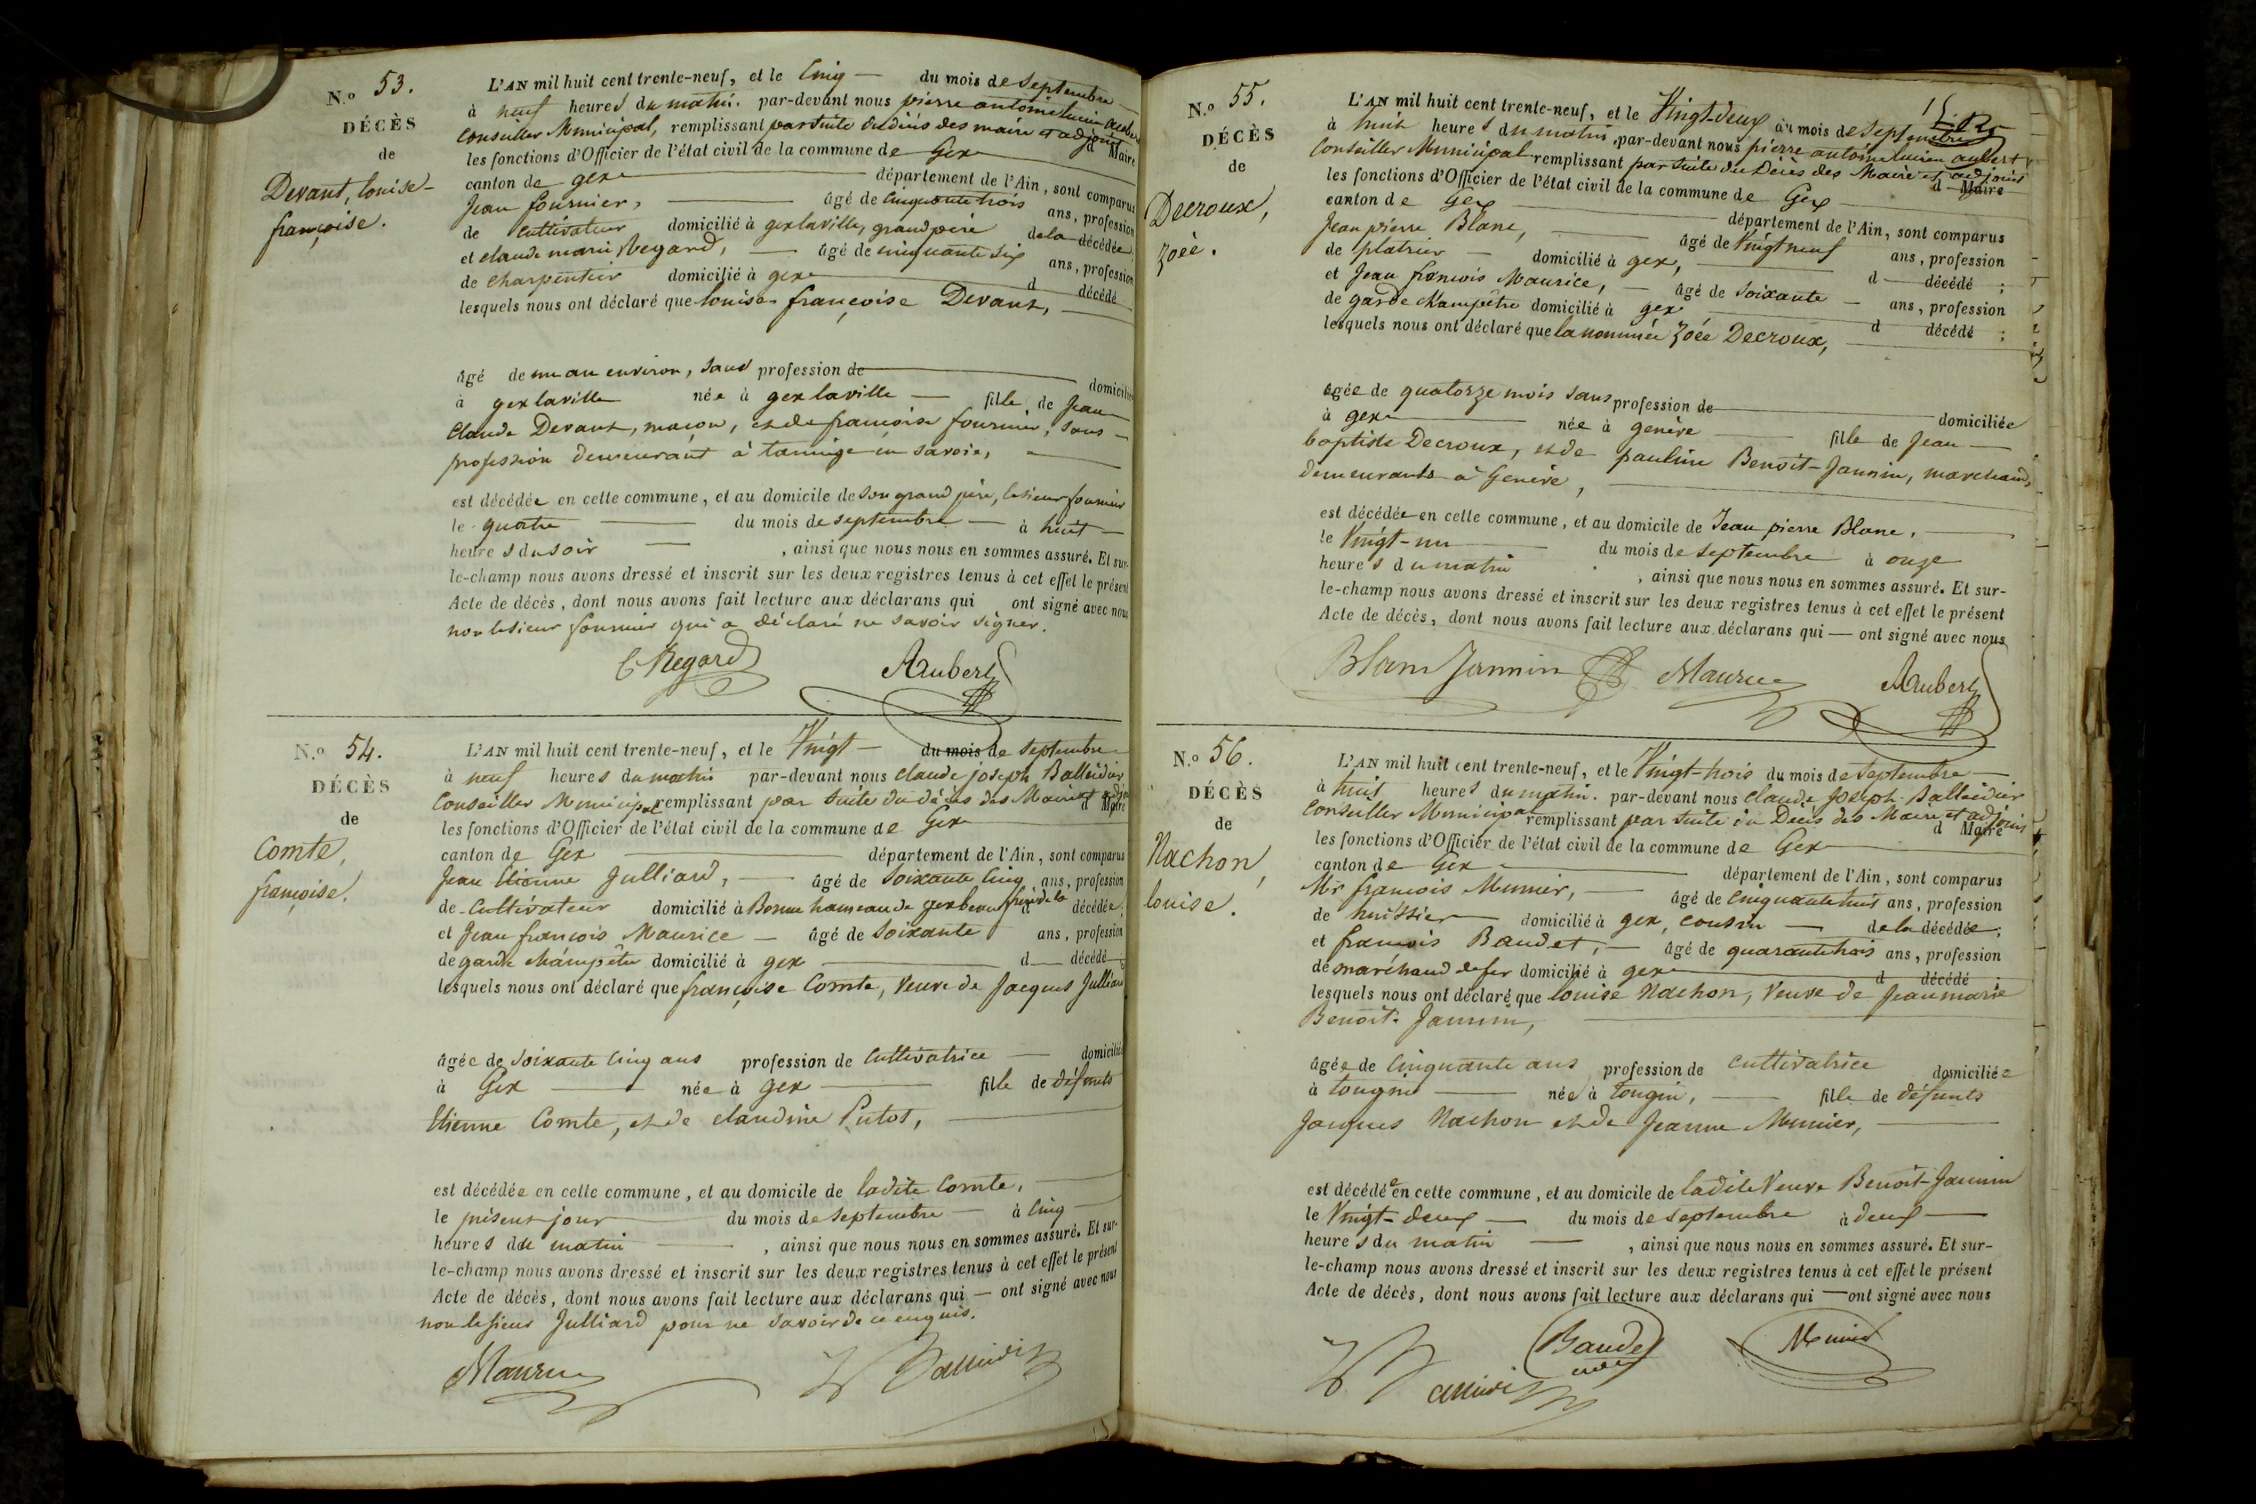 N.º 53.
DÉCÈS
de
Devant, louise-
françoise.
L'AN mil huit cent trente-neuf, et le Cinq — du mois de septembre
à neuf heures du matin. par-devant nous pierre antoine lucien aubert
Conseiller Municipal, remplissant par suite du décès des maire et adjoint d Maire
les fonctions d'Officier de l'état civil de la commune de Gex
canton de gex département de l'Ain, sont comparus
Jean fournier, âgé de cinquante trois ans, profession
de cultivateur domicilié à gex laville, grand père de la décédée;
et claude marie Regard, — âgé de cinquante six ans, profession
de charpentier domicilié à gex d décédé
lesquels nous ont déclaré que louise françoise Devant,
âgé de un an environ, sans profession de domiciliée
à gex laville née à gex laville — fille de Jean
Claude Devant, maçon, et de françoise fournier, sans
profession demeurant à taninge en savoie,
est décédée en cette commune, et au domicile de son grand père, le sieur fournier
le quatre du mois de septembre — à huit —
heures du soir , ainsi que nous nous en sommes assuré. Et sur-
le-champ nous avons dressé et inscrit sur les deux registres tenus à cet effet le présent
Acte de décès, dont nous avons fait lecture aux déclarans qui ont signé avec nous
non le sieur fournier qui a déclaré ne savoir signer.
C Regard Aubert
N.º 54.
DÉCÈS
de
Comte,
françoise.
L'AN mil huit cent trente-neuf, et le Vingt — du mois de septembre
à neuf heures du matin par-devant nous claude joseph Balleidier
Conseiller Municipal remplissant par suite du décès des Maire et adjoint d Maire
les fonctions d'Officier de l'état civil de la commune de Gex
canton de Gex département de l'Ain, sont comparus
Jean Etienne Julliard, — âgé de soixante cinq ans, profession
de Cultivateur domicilié à hameau de gex beau frère de la décédée;
et Jean françois Maurice — âgé de soixante ans, profession
de garde champêtre domicilié à gex d décédé
lesquels nous ont déclaré que françoise Comte, Veuve de Jacques Julliard
âgée de soixante cinq ans profession de Cultivatrice — domiciliée
à Gex née à gex fille de défunts
Etienne Comte, et de claudine Putot,
est décédée en cette commune, et au domicile de ladite Comte,
le présent jour du mois de septembre — à cinq —
heures du matin , ainsi que nous nous en sommes assuré. Et sur-
le-champ nous avons dressé et inscrit sur les deux registres tenus à cet effet le présent
Acte de décès, dont nous avons fait lecture aux déclarans qui — ont signé avec nous
non le sieur Julliard pour ne savoir de ce enquis.
Maurice Balleidier
N.º 55.
DÉCÈS
de
Decroux,
zoée.
L'AN mil huit cent trente-neuf, et le Vingt-deux du mois de septembre
à huit heures du matin, par-devant nous pierre antoine lucien aubert
Conseiller Municipal remplissant par suite du Décès des Maire et adjoint d Maire
les fonctions d'Officier de l'état civil de la commune de Gex
canton de Gex département de l'Ain, sont comparus
Jean pierre Blanc, âgé de Vingt neuf ans, profession
de platrier — domicilié à gex, d décédé ;
et Jean françois Maurice, — âgé de soixante — ans, profession
de garde champêtre domicilié à gex d décédé ;
lesquels nous ont déclaré que la nommée zoée Decroux,
agée de quatorze mois sans profession de domiciliée
à gex née à genève fille de Jean
baptiste Decroux, et de pauline Benoit-Jannin, marchands,
demeurants à Genève,
est décédée en cette commune, et au domicile de Jean pierre Blanc,
le Vingt-un du mois de septembre à onze
heures du matin , ainsi que nous nous en sommes assuré. Et sur-
le-champ nous avons dressé et inscrit sur les deux registres tenus à cet effet le présent
Acte de décès, dont nous avons fait lecture aux déclarans qui — ont signé avec nous
Blanc Jannin Maurice Aubert
N.º 56.
DÉCÈS
de
Nachon,
louise.
L'AN mil huit cent trente-neuf, et le Vingt-trois du mois de septembre —
à huit heures du matin. par-devant nous claude Joseph Balleidier
Conseiller Municipal remplissant par suite du Décès des Maire et adjoint d Maire
les fonctions d'Officier de l'état civil de la commune de Gex
canton de Gex département de l'Ain, sont comparus
Mr françois Munier, — âgé de cinquante huit ans, profession
de huissier domicilié à gex, cousin — de la décédée;
et françois Baudet, — âgé de quarante trois ans, profession
de marchand de fer domicilié à gex d décédé
lesquels nous ont déclaré que louise Nachon, Veuve de Jean marie
Benoit-Jannin,
âgée de Cinquante ans profession de cultivatrice domiciliée
à tougin née à tougin, fille de défunts
Jacques Nachon et de Jeanne Munier,
est décédée en cette commune, et au domicile de ladite Veuve Benoit-Jannin
le Vingt-deux — du mois de septembre à deux
heures du matin , ainsi que nous nous en sommes assuré. Et sur-
le-champ nous avons dressé et inscrit sur les deux registres tenus à cet effet le présent
Acte de décès, dont nous avons fait lecture aux déclarans qui — ont signé avec nous
Balleidier Baudet Munier